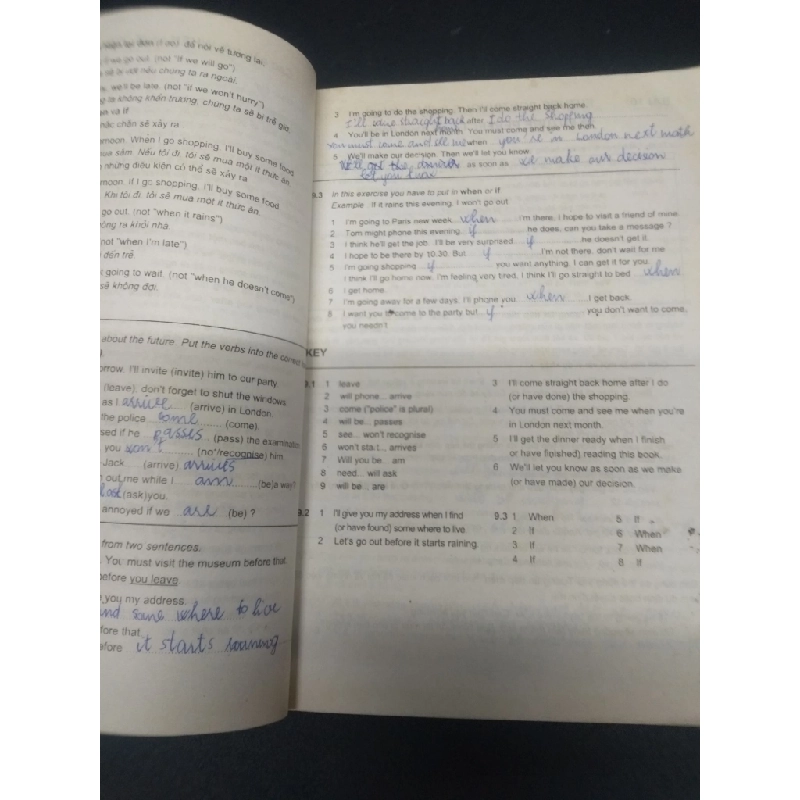 đó nói về tương lai
go out. (not "If we will go")
nếu chúng ta ra ngoài.
we'll be late. (not "if we won't hurry")
ta không khẩn trương, chúng ta sẽ bị trễ giờ.
và If
chắc chắn sẽ xảy ra
When I go shopping, I'll buy some food
Nếu tôi đi, tôi sẽ mua một ít thức ăn
những điều kiện có thể sẽ xảy ra
if I go shopping, I'll buy some food
Khi tôi đi, tôi sẽ mua một ít thức ăn.
go out. (not "when it rains")
ra khỏi nhà.
not "when I'm late")
đến trễ.
going to wait. (not "when he doesn't come")
sẽ không đợi.
about the future. Put the verbs into the correct
I'll invite (invite) him to our party.
(leave), don't forget to shut the windows
as I arrive (arrive) in London.
the police come (come).
if he passes (pass) the
you won't (not/recognise) him
Jack (arrive) arrives
me while I am (be)
(ask) you.
annoyed if we are (be) ?
from two sentences.
You must visit the museum before that.
before you leave.
you my address.
some where to live
before that.
it starts raining
3 I'm going to do the shopping. Then I'll come straight back home.
I'll come straight back after I do the shopping
4 You'll be in London next month. You must come and see me then.
you must come and see me when you're in London next month
5 We'll make our decision. Then we'll let you know.
as soon as we make our decision
9.3 In this exercise you have to put in when or if
Example If it rains this evening, I won't go out.
1 I'm going to Paris next week. when I'm there, I hope to visit a friend of mine.
2 Tom might phone this evening. if he does, can you take a message ?
3 I think he'll get the job. I'll be very surprised if he doesn't get it.
4 I hope to be there by 10.30. But if I'm not there, don't wait for me
5 I'm going shopping. if you want anything, I can get it for you.
I think I'll go home now. I'm feeling very tired. I think I'll go straight to bed when
6 I get home.
7 I'm going away for a few days. I'll phone you when I get back.
8 I want you to come to the party but if you don't want to come,
you needn't.
KEY
9.1 1 leave
2 will phone... arrive
3 come ("police" is plural)
4 will be... passes
5 see... won't recognise
6 won't start... arrives
7 Will you be... am
8 need... will ask
9 will be... are
9.2 1 I'll give you my address when I find
(or have found) some where to live.
2 Let's go out before it starts raining.
3 I'll come straight back home after I do
(or have done) the shopping.
4 You must come and see me when you're
in London next month.
5 I'll get the dinner ready when I finish
(or have finished) reading this book.
6 We'll let you know as soon as we make
(or have made) our decision.
9.3 1 When
2 If
3 If
4 If
5 If
6 When
7 When
8 If